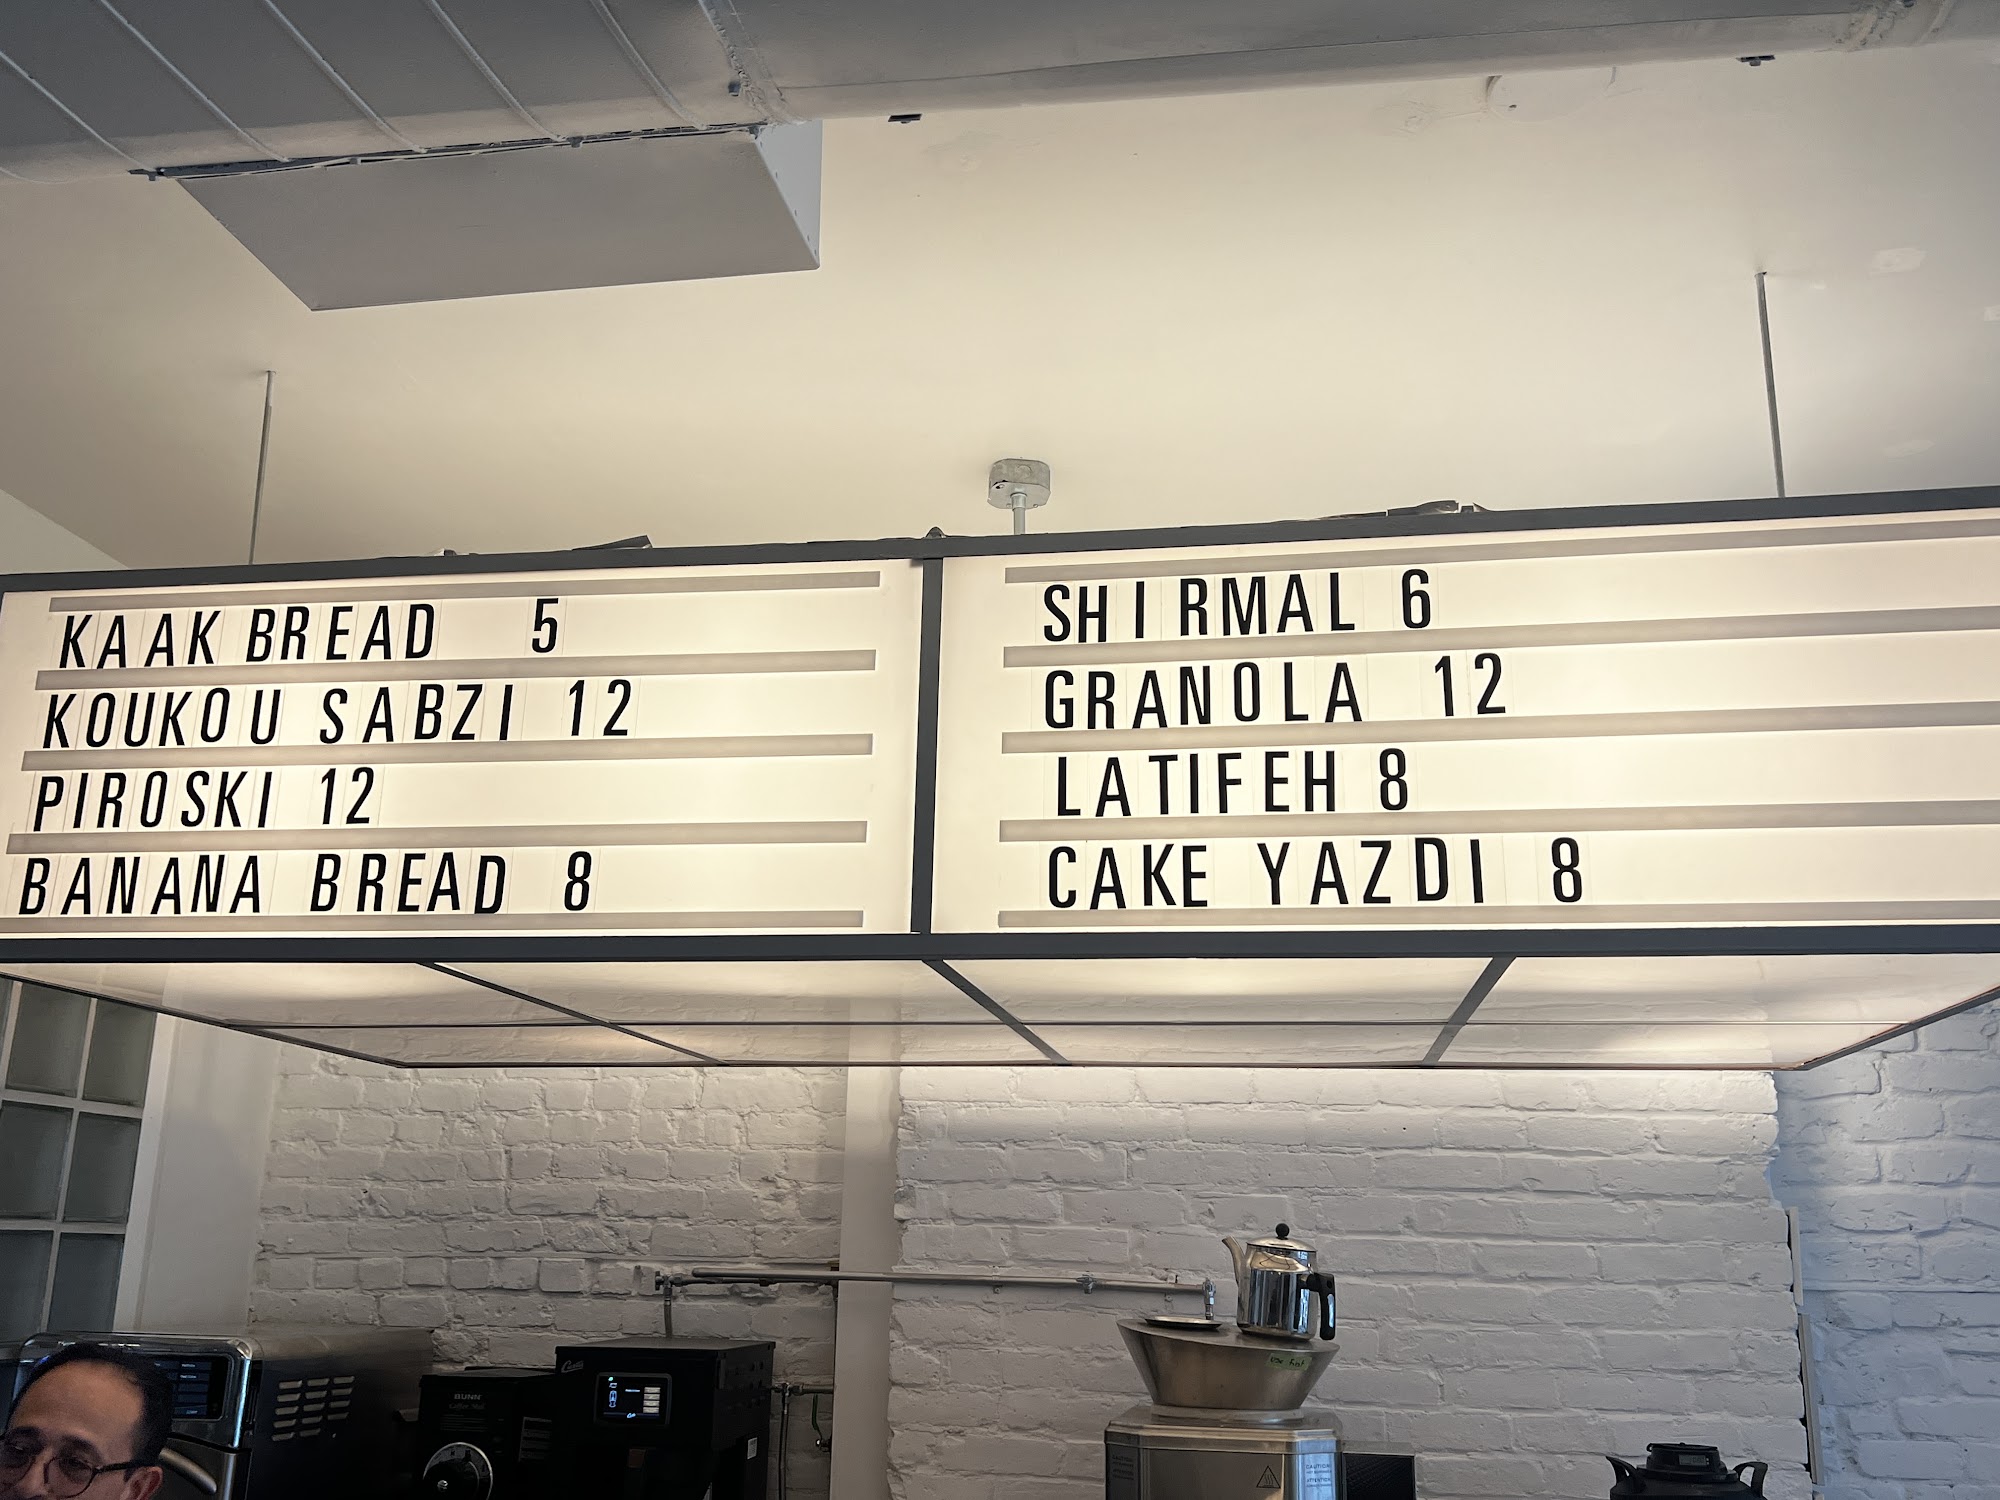 KAAK BREAD 5
KOUKOU SABZI 12
PIROSKI 12
BANANA BREAD 8
SHIRMAL 6
GRANOLA 12
LATIFEH 8
CAKE YAZDI 8
BUNN
Curtis
CAUTION
CAUTION